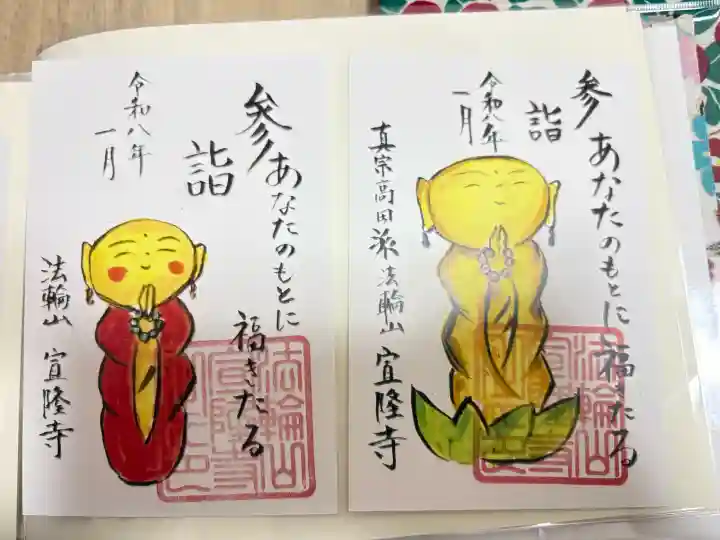 参詣
あなたのもとに
福きたる
令和八年
一月
法輪山 宜隆寺
参詣
あなたのもとに福きたる
令和八年
一月
真宗高田派法輪山
宜隆寺